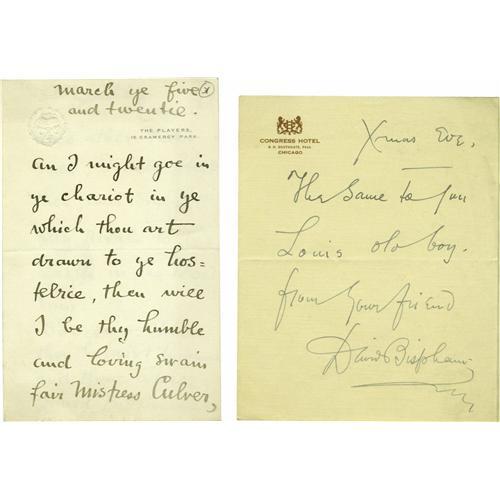 March ye five
and twentie.
THE PLAYERS,
16 GRAMERCY PARK.
an I might goe in
ye chariot in ye
which thou art
drawn to ye hos=
telrie, then will
I be thy humble
and loving swain
fair Mistress Culver,
CONGRESS HOTEL
CHICAGO
Xmas Eve.
The same to you
Louis old boy.
from your friend
David Bispham